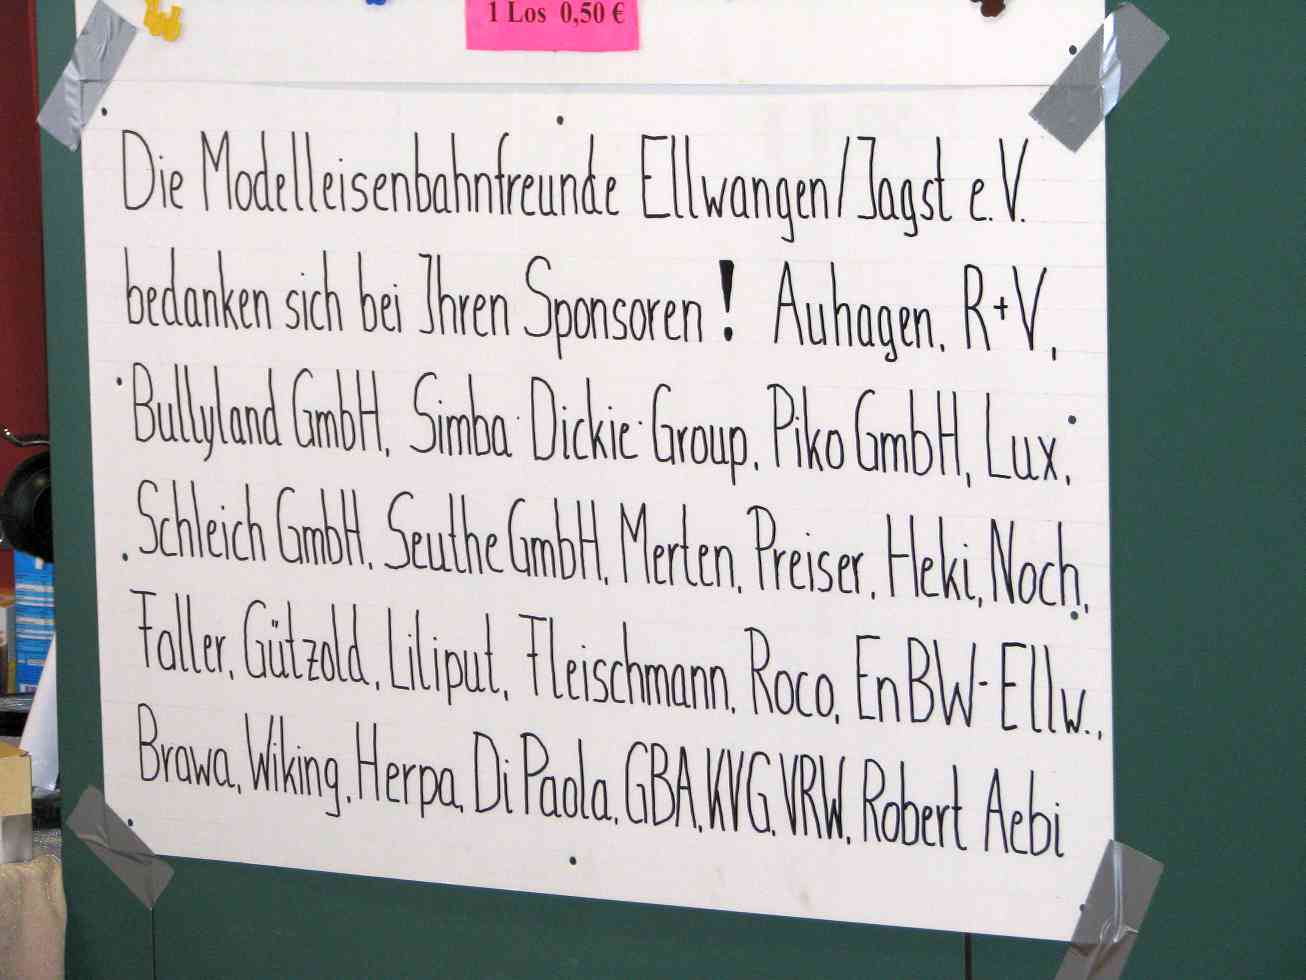 1 Los 0,50 €
Die Modelleisenbahnfreunde Ellwangen/Jagst e.V.
bedanken sich bei Ihren Sponsoren! Auhagen, R+V,
Bullyland GmbH, Simba Dickie Group, Piko GmbH, Lux,
Schleich GmbH, Seuthe GmbH, Merten, Preiser, Heki, Noch,
Faller, Gützold, Liliput, Fleischmann, Roco, EnBW-Ellw.,
Brawa, Wiking, Herpa, Di Paola, GBA, KVG, VRW, Robert Aebi